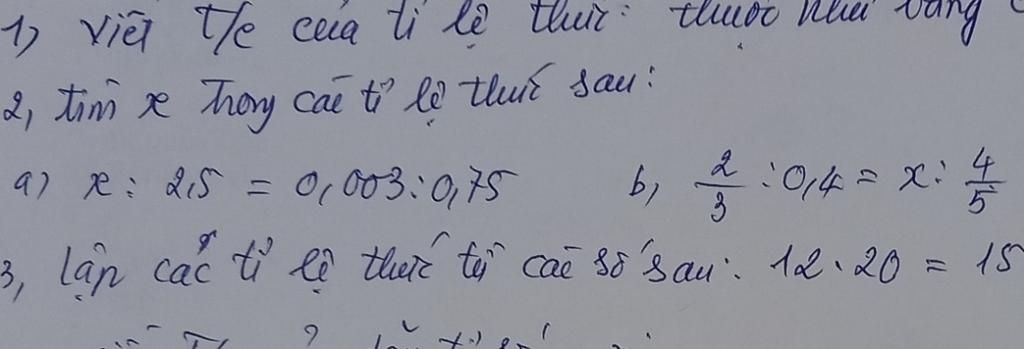 1) Viết T/c của tỉ lệ thức: thuộc như bảng
2, tìm x trong các tỉ lệ thức sau:
a) x : 2,5 = 0,003 : 0,75 b, 2/3 : 0,4 = x : 4/5
3, lập các tỉ lệ thức từ các số sau: 12.20 = 15